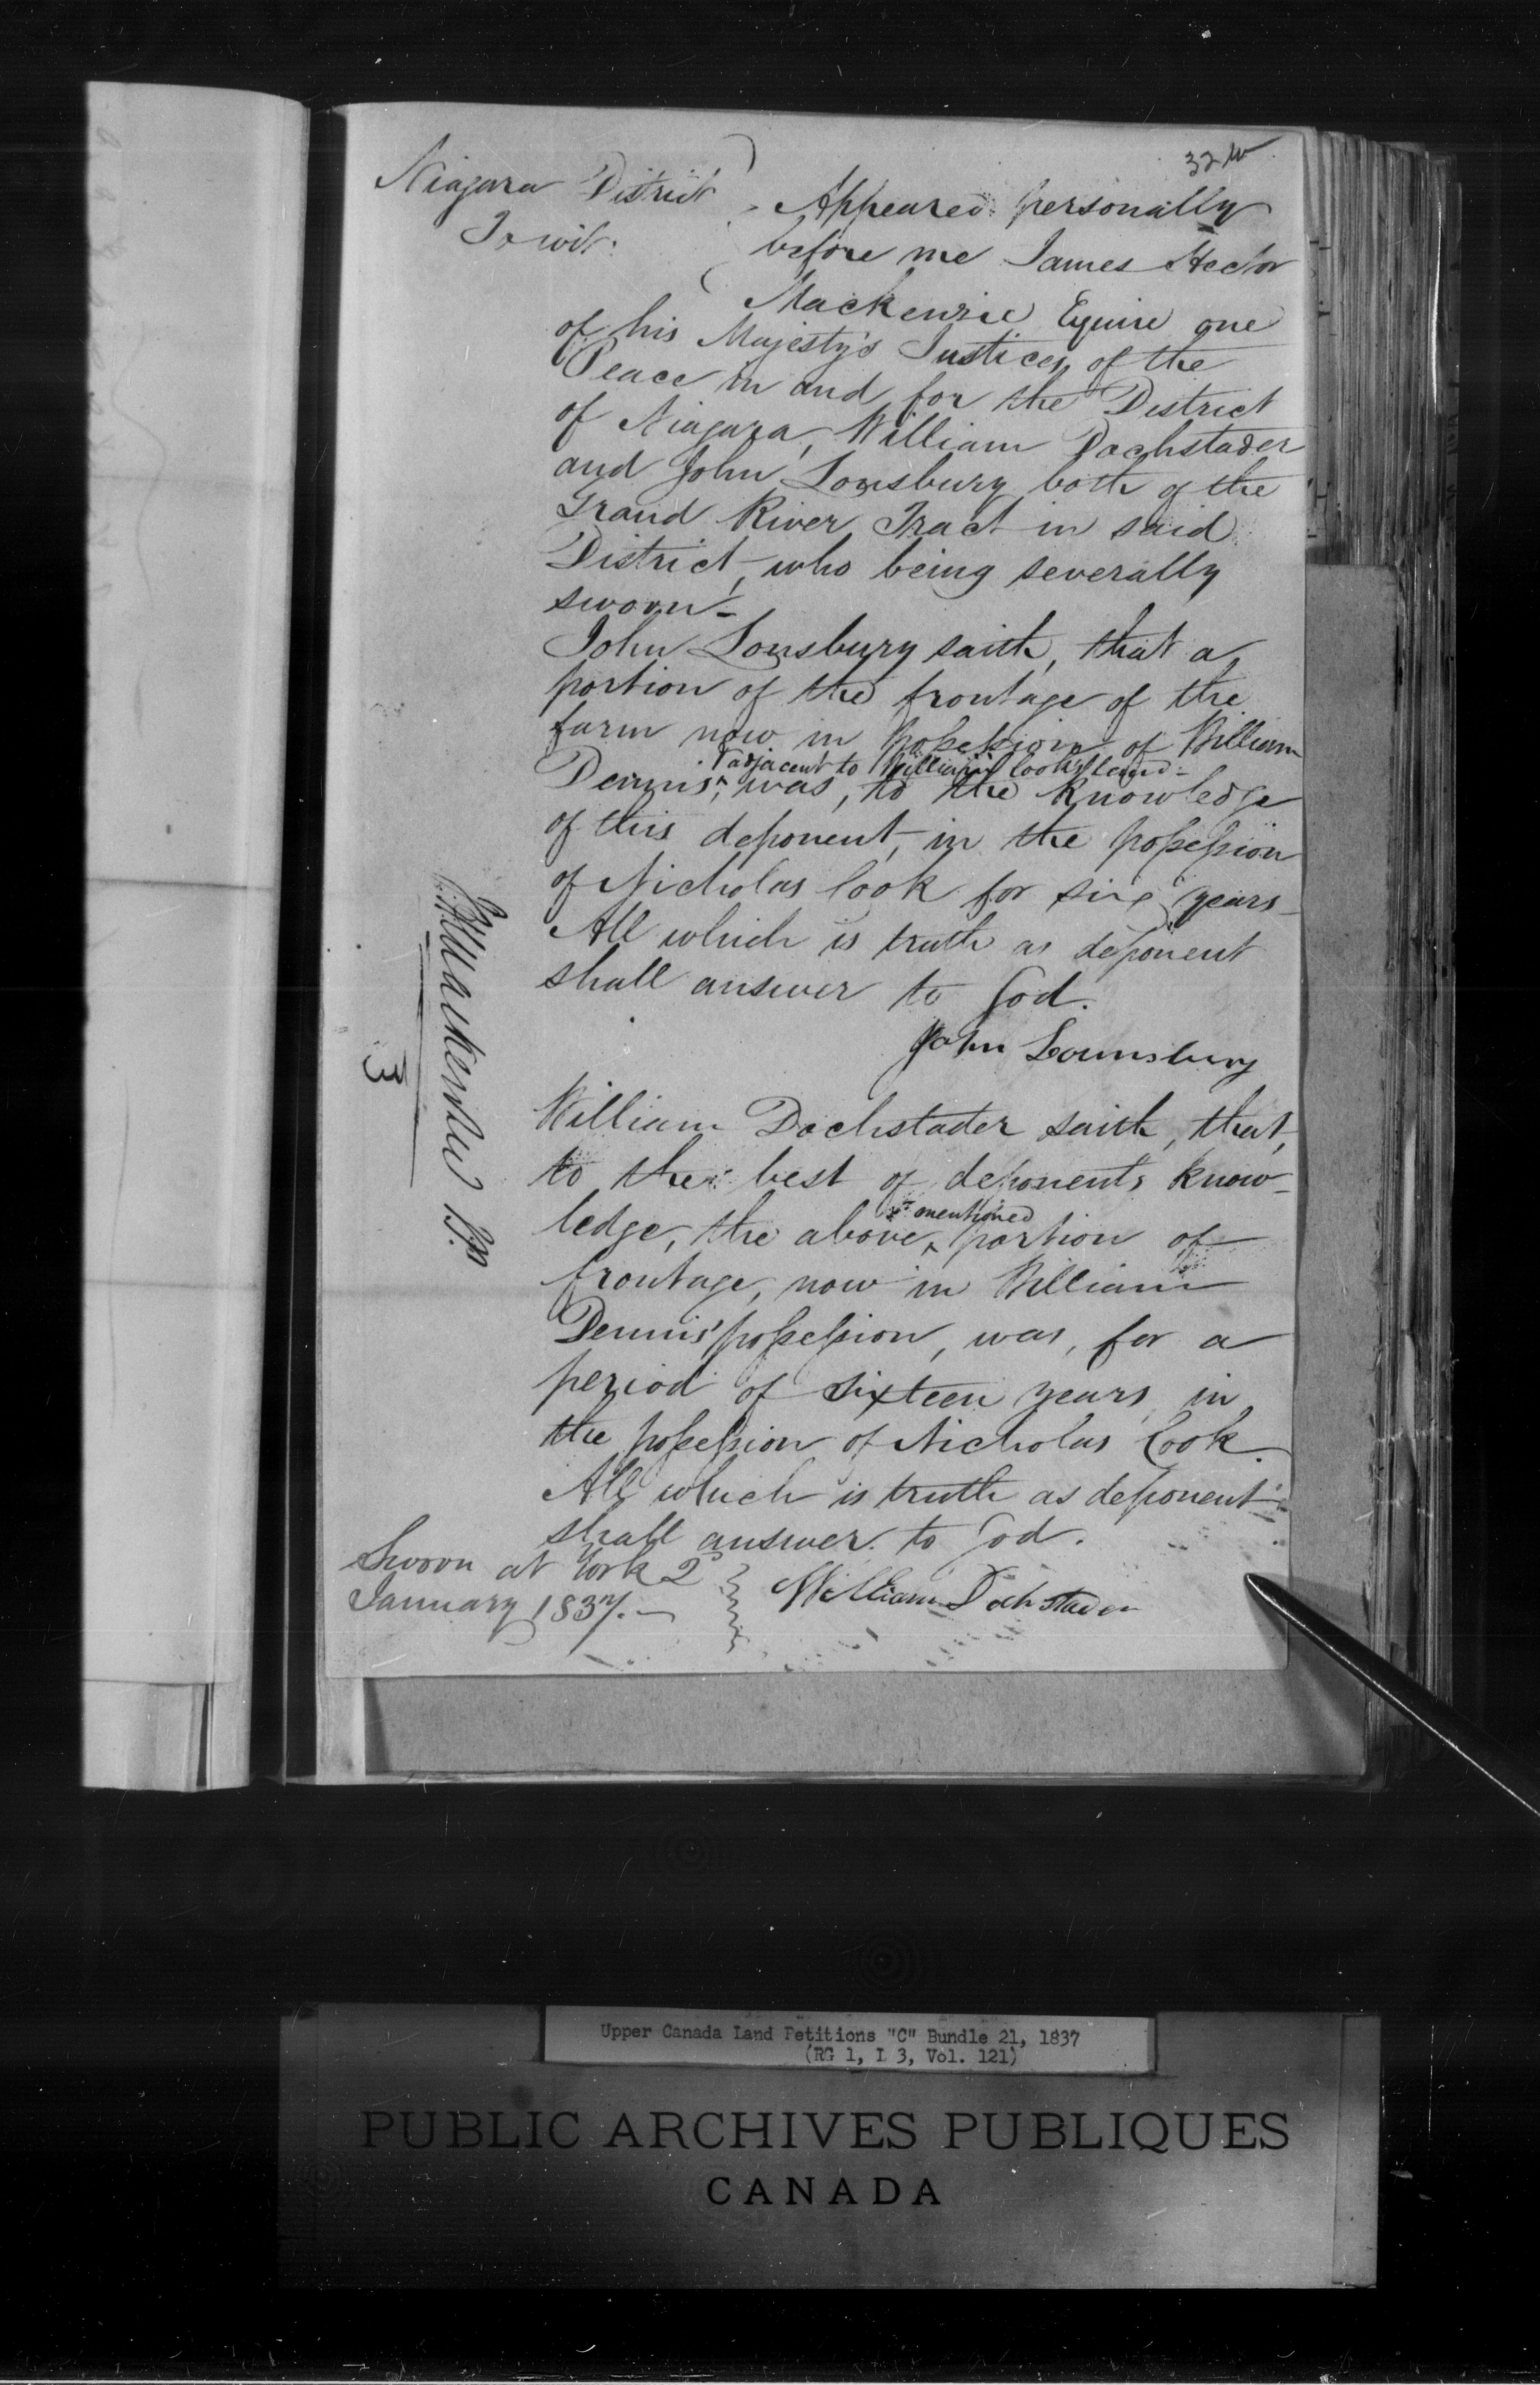 32 w
Niagara District
To wit.
Appeared personally
before me James Hector
Mackenzie Equire one
of his Majesty's Justices of the
Peace in and for the District
of Niagara, William Dochstader
and John Lonsbury both of the
Grand River Tract in said
District, who being severally
sworn -
John Lonsbury saith, that a
portion of the frontage of the
farm now in possession of William
adjacent to William Cook's land -
Dennis, was, to the knowledge
of this deponent, in the possession
of Nicholas Cook for six years -
All which is truth as deponent
shall answer to God.
John Lounsbury
William Dochstader saith, that,
to the best of deponents know-
mentioned
ledge, the above portion of
frontage, now in William
Dennis' possession, was, for a
period of sixteen years in
the possession of Nicholas Cook.
All which is truth as deponent
shall answer to God.
Sworn at York 2d
January 1837. -
William Dochstader
Mackenzie J.P.
3
Upper Canada Land Petitions "C" Bundle 21, 1837
(RG 1, L 3, Vol. 121)
PUBLIC ARCHIVES PUBLIQUES
CANADA